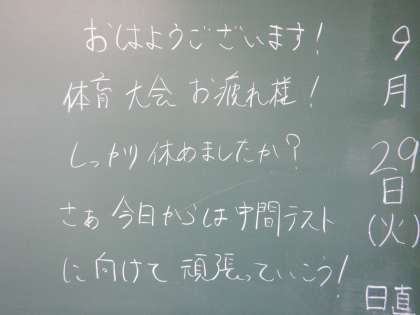 おはようございます!
体育大会 お疲れ様!
しっかり休めましたか?
さぁ 今日からは中間テスト
に向けて 頑張っていこう!
9月29日(火)
日直